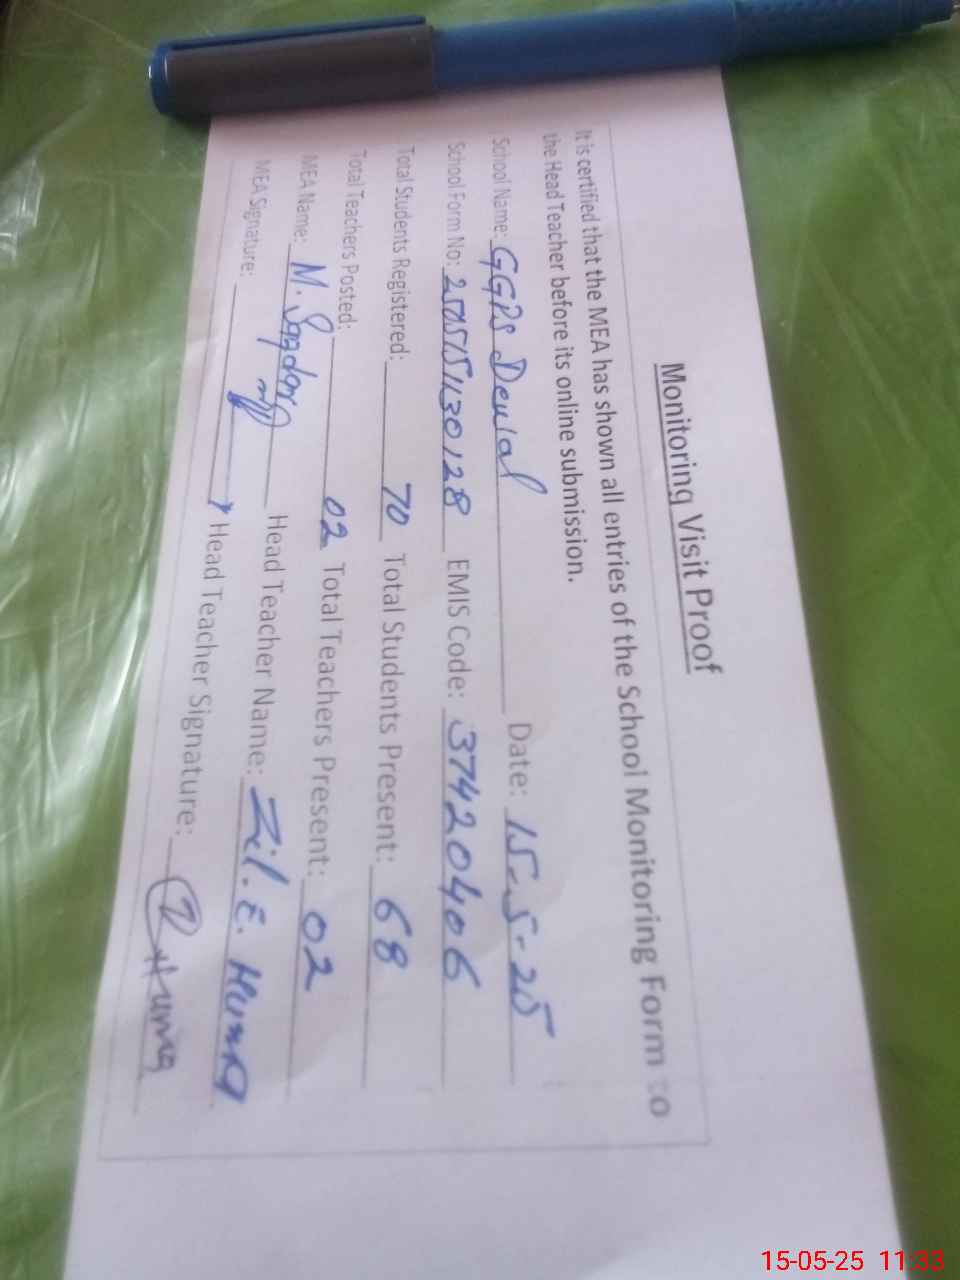 Monitoring Visit Proof
It is certified that the MEA has shown all entries of the School Monitoring Form to
the Head Teacher before its online submission.
School Name: GGPS Devial Date: 15-5-25
School Form No: EMIS Code: 37420406
Total Students Registered: 70 Total Students Present: 68
Total Teachers Posted: 02 Total Teachers Present: 02
MEA Name: M. Head Teacher Name: Zil.E. Huma
MEA Signature: Head Teacher Signature: Huma
15-05-25 11:33